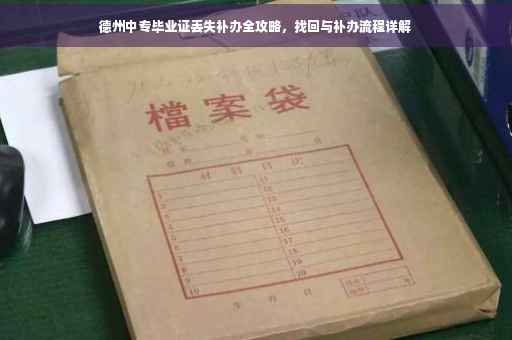 德州中专毕业证丢失补办全攻略，找回与补办流程详解
檔案袋
材料目次
1 11
2 12
3 13
4 14
5 15
6 16
7 17
8 18
9 19
10 20
年 月 日